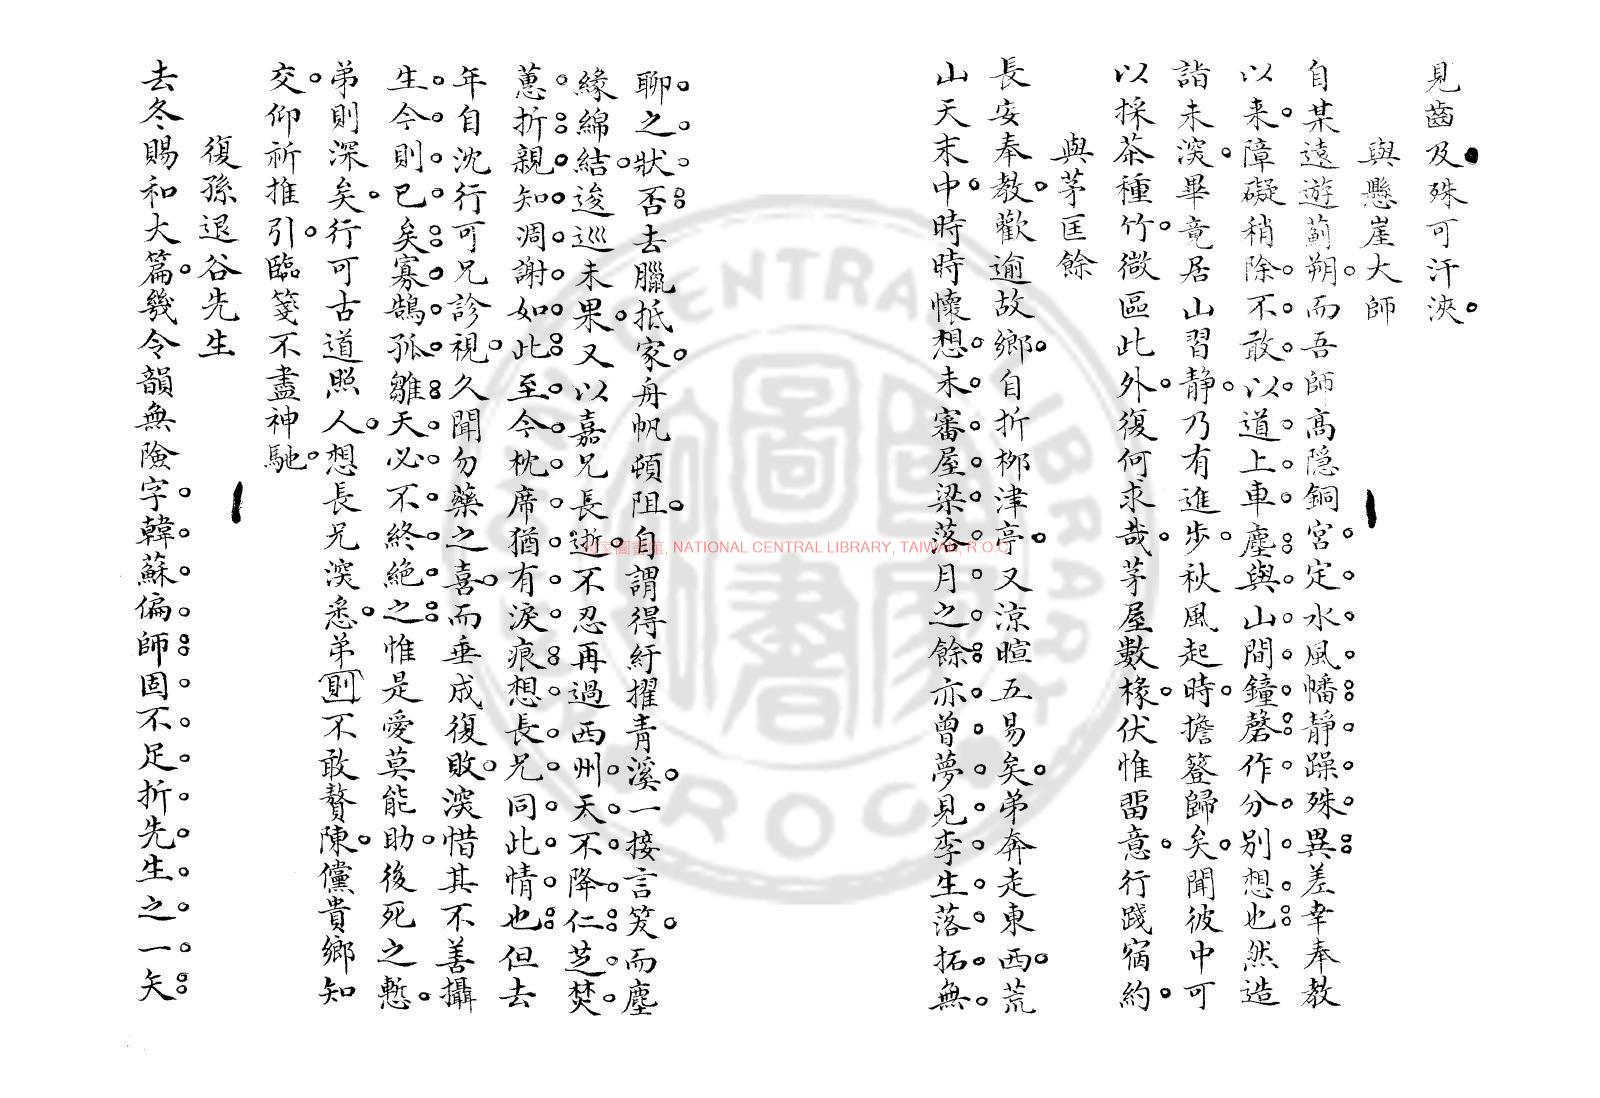 見齒及殊可汗浹
與懸崖大師
自某遠遊薊朔而吾師高隱銅宮定水風幡靜躁殊異差幸奉教
以来障礙稍除不敢以道上車塵與山間鐘磬作分别想也然造
詣未深畢竟居山習静乃有進步秋風起時擔簦歸矣聞彼中可
以採茶種竹㣲區此外復何求哉茅屋數椽伏惟畱意行踐宿約
與茅匡餘
長安奉教歡逾故鄉自折桞津亭又涼暄五易矣弟奔走東西荒
山天末中時時懷想未審屋梁落月之餘亦曾夢見李生落拓無
聊之狀否去臘抵家舟帆頓阻自謂得紆擢青溪一接言笑而塵
緣綿結逡巡未果又以嘉兄長逝不忍再過西州天不降仁芝焚
蕙折親知凋謝如此至今枕席猶有淚痕想長兄同此情也但去
年自沈行可兄診視久聞勿藥之喜而垂成復敗深惜其不善攝
生今則已矣寡鵠孤雛天必不終絶之惟是愛莫能助後死之慙
弟則深矣行可古道照人想長兄深悉弟則不敢贅陳儻貴鄉知
交仰祈推引臨箋不盡神馳
復孫退谷先生
去冬賜和大篇幾令韻無險字韓蘇偏師固不足折先生之一矢
國家圖書館, NATIONAL CENTRAL LIBRARY, TAIWAN, R.O.C
NATIONAL CENTRAL LIBRARY
ROC
國家圖書館